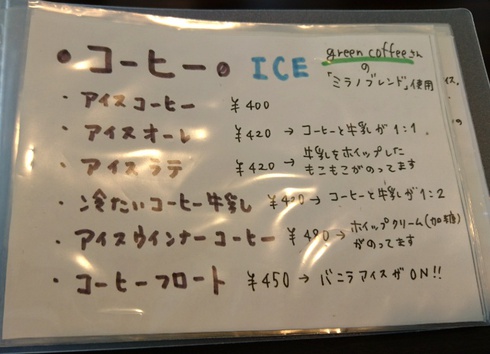 • コーヒー • ICE green coffeeさんの「ミラノブレンド」使用
・アイスコーヒー ¥400
・アイスオーレ ¥420 → コーヒーと牛乳が1:1.
・アイスラテ ¥420 → 牛乳をホイップしたもこもこがのってます
・冷たいコーヒー牛乳 ¥420 → コーヒーと牛乳が1:2
・アイスウインナーコーヒー ¥490 → ホイップクリーム(加糖)がのってます
・コーヒーフロート ¥450 → バニラアイスがON!!